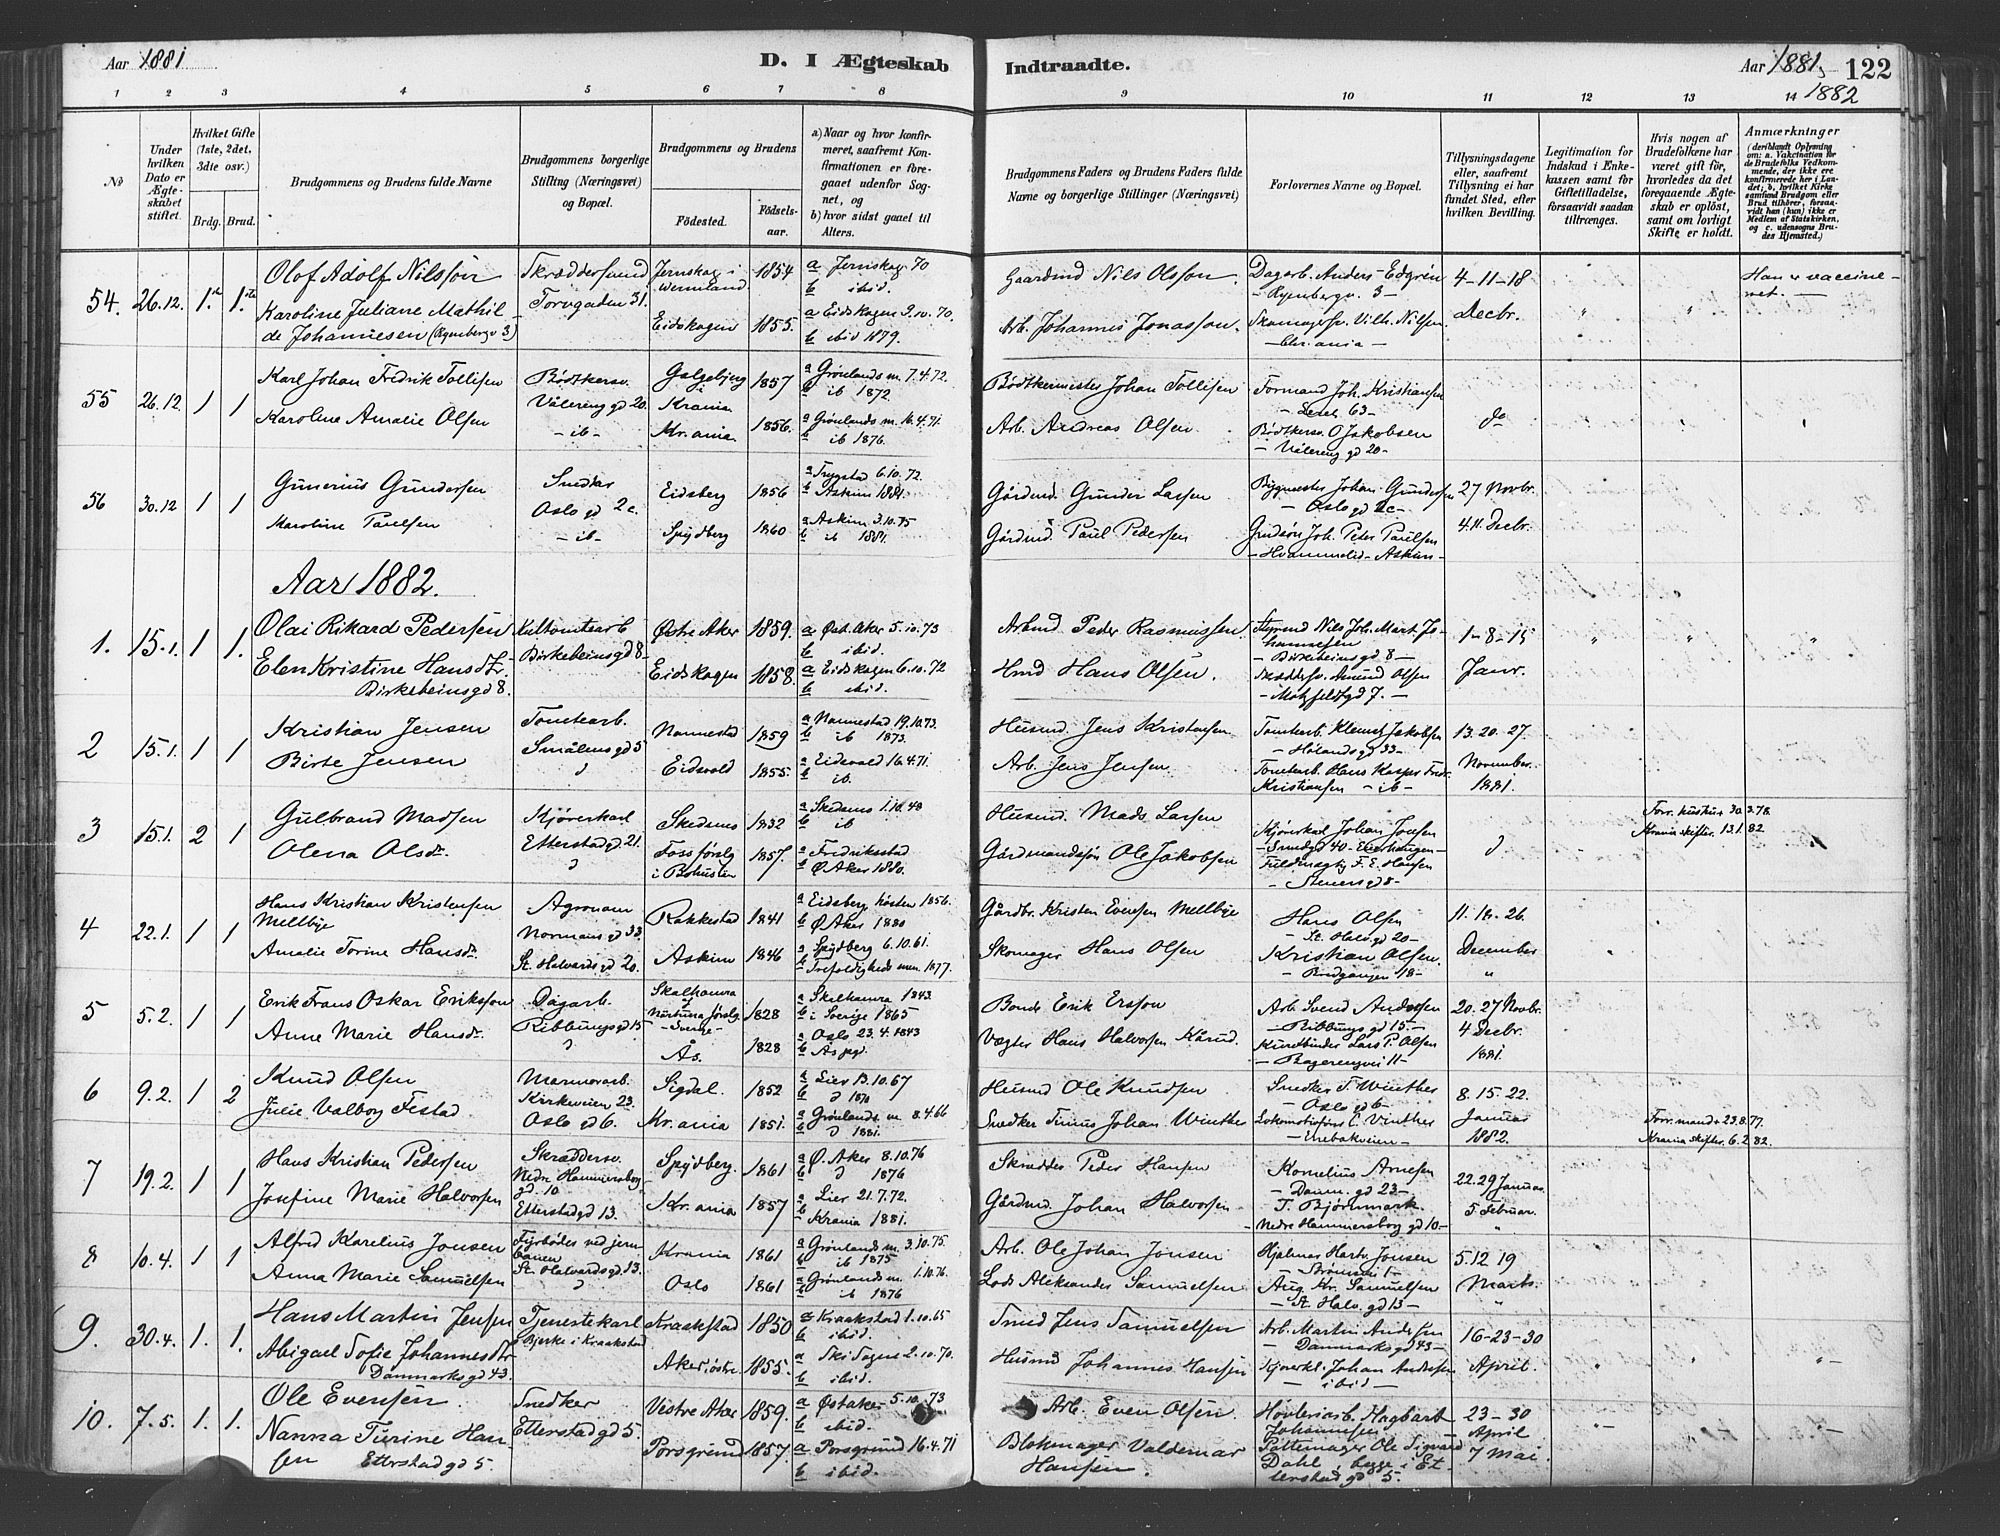 Aar 1881
D. I Ægteskab
Indtraadte.
Aar 1881, 122
1882
1 2 3 4 5 6 7 8 9 10 11 12 13 14
No
Under hvilken Dato er Ægteskabet stiftet.
Hvilket Gifte (1ste, 2det, 3die osv.)
Brdg. Brud.
Brudgommens og Brudens fulde Navne
Brudgommens borgerlige Stilling (Næringsvei) og Bopæl.
Brudgommens og Brudens
Fødested. Fødselsaar.
a) Naar og hvor konfirmeret, saafremt Konfirmationen er foregaaet udenfor Sognet, og
b) hvor sidst gaaet til Alters.
Brudgommens Faders og Brudens Faders fulde Navne og borgerlige Stillinger (Næringsvei)
Forlovernes Navne og Bopæl.
Tillysningsdagene eller, saafremt Tillysning ei har fundet Sted, efter hvilken Bevilling.
Legitimation for Indskud i Enkekassen samt for Giftetilladelse, forsaavidt saadan tiltrænges.
Hvis nogen af Brudefolkene har været gift før, hvorledes da det foregaaende Ægteskab er opløst, samt om lovligt Skifte er holdt.
Anmærkninger (deriblandt Oplysning om: a. Vaccination for de Brudefolks Vedkommende, der ikke ere konfirmerede her i Landet; b, hvilket Kirkesamfund Brudgom eller Brud tilhører, forsaavidt han (hun) ikke er Medlem af Statskirken, og c. udensogns Brudes Hjemsted.)
54. 26.12. 1. 1.
Olof Adolf Nilsson Skræddersvend Jernskog i Wermland. 1854 a Jernskog 70
Torvgaden 31. b ibid.
Karoline Juliane Mathilde Johannesen (Ryenbergv 3) Eidskogen 1855. a Eidskogen 3.10.70.
b ibid 1879.
Gaardmd Nils Olsson. Dagarb. Anders Edgrén 4-11-18
- Ryenbergv. 3 - Decbr.
Arb. Johannes Jonasson. Skomagersv. Vilh. Nilsen
- Chr.ania -
55 26.12. 1 1
Karl Johan Fredrik Tollisen Bødtkersv. 1857 a Grønlands m. 7.4.72.
Vålereng gd 20. Krania b ib 1872
Karoline Amalie Olsen - ib - Kr.ania 1856. a Grønlands m. 16.4.71.
b ib 1876.
Bødtkermester Johan Tollisen Formand Joh. Kristiansen
Arb. Andreas Olsen. Bødtkersv. O Jakobsen do
- Vålereng gd 20 -
56 30.12 1 1
Gunerius Gundersen Snedker Eidsberg 1856 a Trygstad 6.10.72.
Oslo gd 2c. b Askim 1881.
Maroline Paulsen - ib - Spydberg 1860 a Askim 3.10.75
b ib 1881.
Gårdmd. Gunder Larsen Bygmester Johan Gundersen 27 Novbr.
- Oslo gd 2c - 4.11. Decbr.
Gårdmd. Paul Pedersen Grudsøn Joh. Peter Paulsen
Aar 1882.
1. 15.1. 1 1.
Olai Rikard Pedersen Østre Aker 1859. a Øst. Aker 5.10.73
Birkebeinsgd 8 - b ibid.
Elen Kristine Hansdtr. Birkebeinsgd 8. Eidskogen 1858. a Eidskogen 6.10.72
b ibid.
Arbmd Peder Rasmussen. Styrmd Nils Joh. Mart. Johannesen 1-8-15
- Birkebeinsgd 8 - Janr.
Hmd Hans Olsen. Skræddersv. Amund Olsen
- Motzfeldtgd 7. -
2 15.1. 1 1
Kristian Jensen Tomtearb. Nannestad 1859 a Nannestad 19.10.73.
Smålensgd 5 b ib 1873.
Birte Jensen Eidsvold 1855. a Eidsvold 16.4.71.
b ib.
Husmd Jens Kristensen Tomtearb. Klemet Jakobsen 13.20.27.
- Hølandsgd 33 - November
Arb. Jens Jensen Tomtearb. Hans Kasper Fredr. Kristiansen - ib - 1881.
3 15.1. 2 1
Gulbrand Madsen Kjørerkarl Skedsmo 1832 a Skedsmo 1.10.48
Etterstad gd 21. b ib
Olena Olsdr. 1857. a Fredriksstad
b Ø Aker 1880.
Husmd. Mads Larsen Kjørerkarl Johan Jonsen
Gårdmandssøn Ole Jakobsen Fuldmægtig F. E. Hansen
- Steners gd 8 -
Forr. hustru + 30.3.78.
Krania skifter. 13.1.82.
4 22.1. 1 1
Hans Kristian Kristensen Mellbye Agronom Rakkestad 1841 a Eidsberg høsten 1856.
Normans gd 33. b Ø. Aker 1880
Amalie Torine Hansdr. St. Halvards gd 20. Askim 1846 a Spydberg 6.10.61.
b Trefoldigheds men. 1877.
Gårdbr. Kristen Evensen Mellbye Hans Olsen 11.18.26.
- St. Halv. gd 20 - December
Skomager Hans Olsen Kristian Olsen.
5 5.2. 1 1
Erik Frans Oskar Eriksson Dagarb. 1828 a Skalhamra 1843.
Ribbungs gd 15 - Sverige - b i Sverige 1865
Anne Marie Hansdr. Ås. 1828 a Oslo 23.4.1843
Bonde Erik Ersson Arb. Svend Andersen 20.27 Novbr.
- Ribbungs gd 15. - 4 Decbr.
Vægter Hans Halvorsen Kårud. Lars P. Olsen 1881.
6 9.2. 1 2
Knud Olsen Marmorarb. Sigdal. 1852 a Lier 13.10.67
Kirkeveien 23. 1870
Julie Valborg Festad Oslo gd 6. Kr.ania 1851. a Grønlands. m. 8.4.66
1881.
Husmd Ole Knudsen Snedker T. Winther 8.15.22.
- Oslo gd 6 - Januar
Snedker Tinus Johan Winther 1882.
Forr. mand + 23.8.77.
Krania skifter. 6.2.82.
7 19.2. 1 1
Hans Kristian Pedersen Skræddersv. Spydberg. 1861 a Ø. Aker 8.10.76
Nedre Hammersborg gd. 10 1876
Josefine Marie Halvorsen Etterstad gd 13. Kr.ania 1857 a Lier 21.7.72.
b Krania 1881.
Skrædder Peder Hansen Kornelius Arnesen 22.29 Januar.
- Danm. gd 23 - 5 Februar.
Gårdmd. Johan Halvorsen T. Bjørnmark
- Nedre Hammersborg gd 10 -
8 10.4. 1 1
Alfred Karelius Jonsen Fyrbøder ved jernbanen Krania 1861 a Grønlands m. 3.10.75.
St. Halvards gd. 13. b ib 1875
Anna Marie Samuelsen Oslo 1861 a Grønlands m. 1.10.76
b ib 1876
Arb. Ole Johan Jonsen Hjalmar Hartv. Jonsen 5.12.19
Marts.
Lods Aleksander Samuelsen Aug. Kr. Samuelsen
- St. Halv. gd 13 -
9. 30.4. 1. 1.
Hans Martin Jensen Tjenestekarl Kraakstad 1850 a Kraakstad 1.10.65
Bjerke i Kraakstad b ibid.
Abigael Sofie Johannesdtr Danmarksgd 43. Aker, østre 1855. a Ski Sogne 2.10.70.
b ibid.
Smed Jens Samuelsen Arb. Martin Andersen 16-23-30
- Danmarksgd 43 - April.
Husmd Johannes Hansen Kjørerkl. Johan Andersen
- ibid -
10. 7.5. 1. 1.
Ole Evensen. Snedker Vestre Aker 1859. a Østaker 5.10.73
Etterstad gd 5. b ibid.
Nanna Turine Hansen Etterstad gd 5. Porsgrund 1857. a Porsgrund 16.4.71
b ibid.
Arb. Even Olsen. Høvleriarb. Hagbart Johannesen 23-30
April
Blokmager Valdemar Hansen. Pottemager Ole Sigvard Dahl, begge i Etterstad gd 5. 7 Mai.